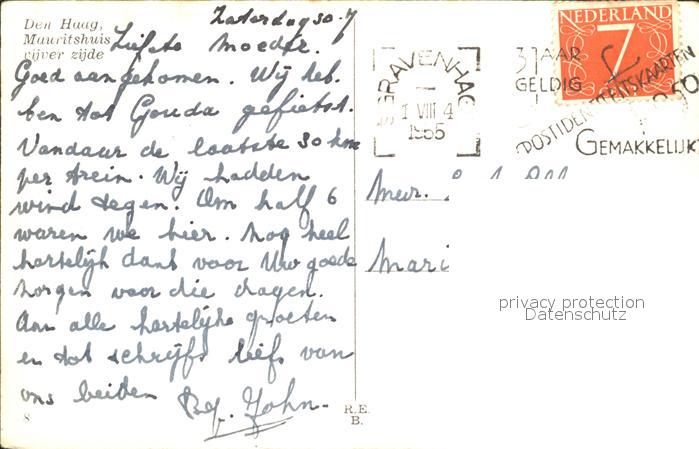 Den Haag,
Mauritshuis
vijver zijde
Zaterdag 30-7
Liefste Moeder.
Goed aangekomen. Wij heb-
ben tot Gouda gefietst.
Vandaar de laatste 30 km
per trein. Wij hadden
wind tegen. Om half 6
waren we hier. Nog heel
hartelijk dank voor Uw goede
zorgen voor die dagen.
Aan alle hartelijke groeten
en tot schrijfs liefs van
ons beiden
John.
8
R.E.
B.
NEDERLAND
7
'S GRAVENHAGE
1 VIII 4
1955
3 JAAR
GELDIG
POSTIDENTITEITSKAARTEN
50
GEMAKKELIJK
Mevr.
Mari
privacy protection
Datenschutz